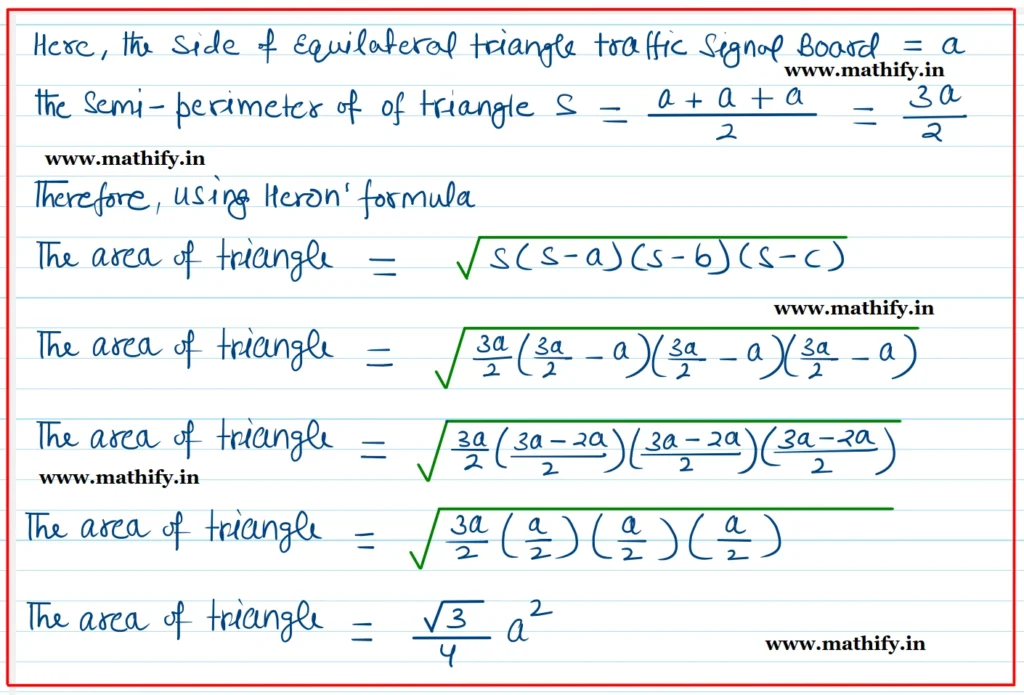 Here, the side of Equilateral triangle traffic Signal Board = a
www.mathify.in
the Semi-perimeter of of triangle S = (a + a + a)/2 = 3a/2
www.mathify.in
Therefore, using Heron' formula
The area of triangle = √(S(S-a)(S-b)(S-c))
www.mathify.in
The area of triangle = √(3a/2 (3a/2 - a)(3a/2 - a)(3a/2 - a))
The area of triangle = √(3a/2 ((3a-2a)/2)((3a-2a)/2)((3a-2a)/2))
www.mathify.in
The area of triangle = √(3a/2 (a/2)(a/2)(a/2))
The area of triangle = √3/4 a²
www.mathify.in